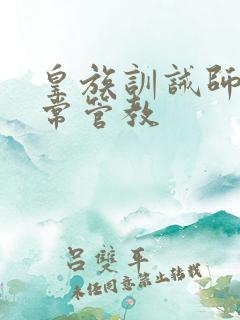 皇族訓誡師
常管教
呂雙平
未经同意禁止转载